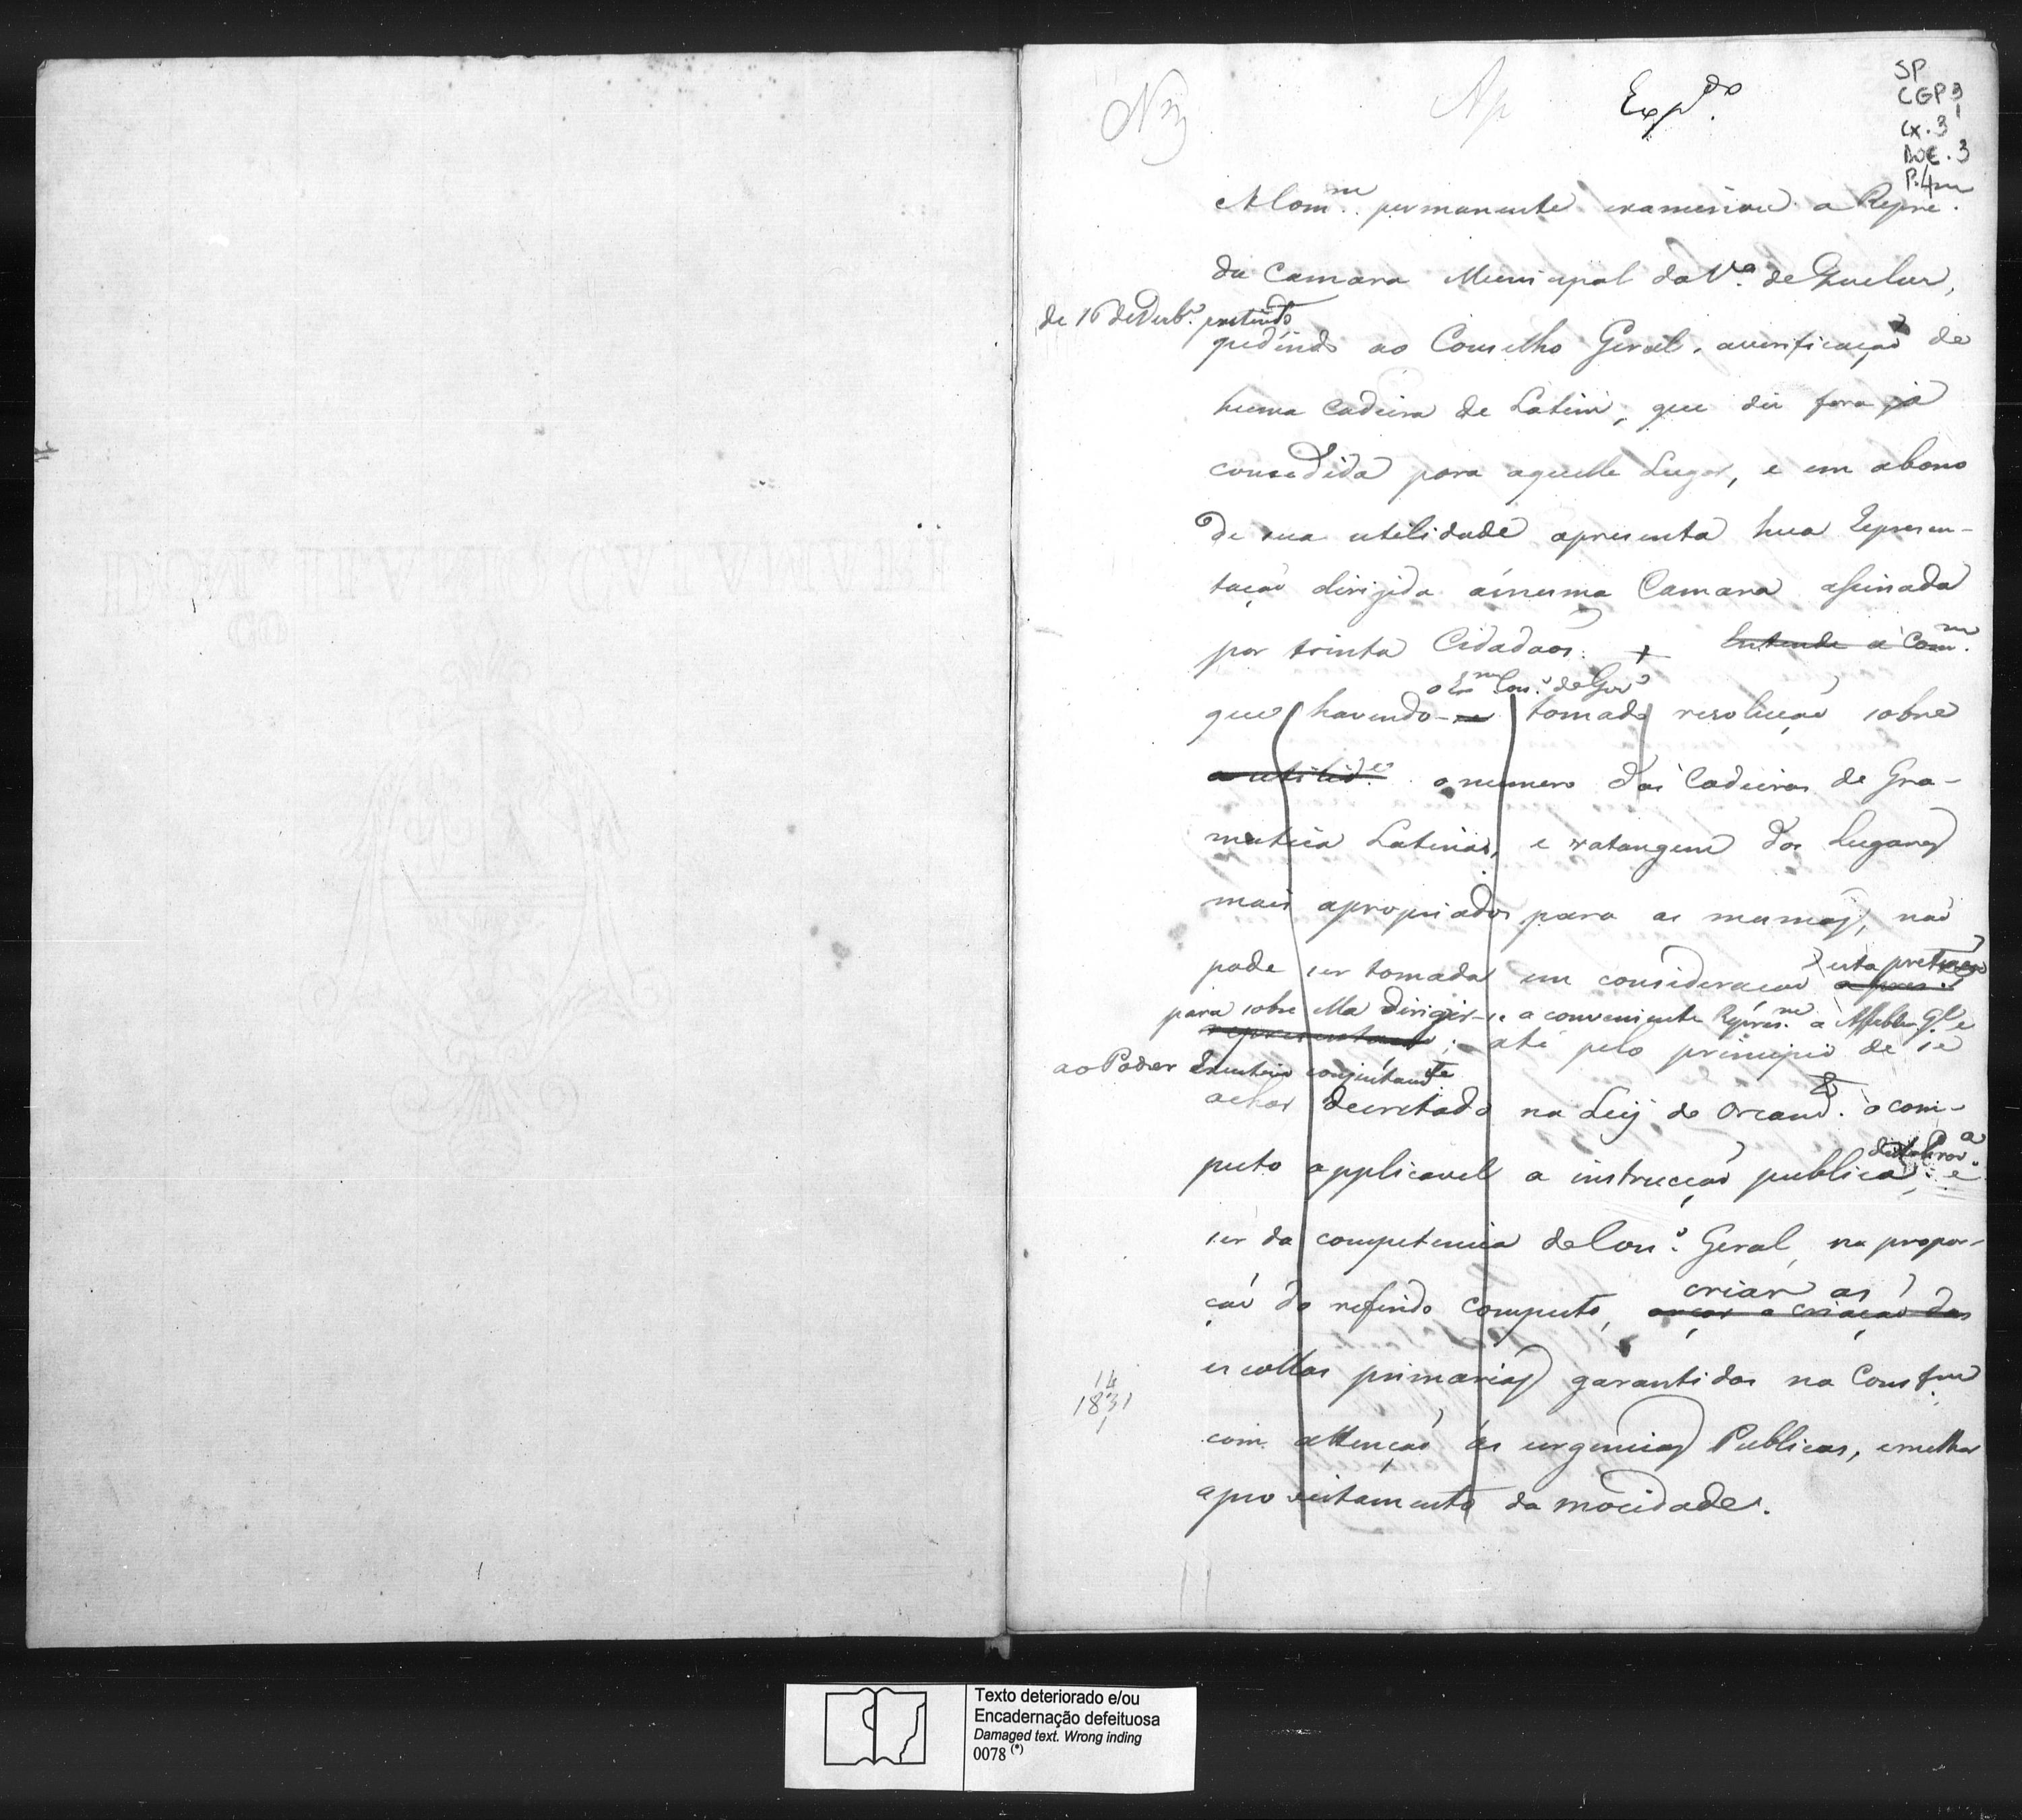 N 3
Ap
Exp.do
SP
CGP 3
1
Cx. 3
DOC. 3
P. 4
A Com.m permanente examinou a Repre.
da Camara Municipal da V.a de Queluz,
de 16 de
pedindo ao Conselho Geral, a verificação de
huma Cadeira de Latim, que diz fora já
consedida para aquelle Lugar, e em abono
de sua utilidade apresenta hua Represen-
tação dirigida á mesma Camara assinada
por trinta Cidadãos. + Entende a Com.m
o Ex.mo Con.o de Gov.o
que havendo-se tomado resolução sobre
a utilid.e o numero das Cadeiras de Gra-
matica Latina, e vatangem dos Lugares
mais apropriados para as mesmas, não
pode ser tomada em consideração esta pretenção
para sobre ella dirigir-se a conveniente Repres.m a Assemblea G.l e
representação; até pelo principio de se
ao Poder Executivo conjuntam.te
achar decretado na Leij do Orcam.to o com-
desta Prov.a
puto applicavel a instrucção publica, e
ser da competencia do Con.o Geral, na propor-
criar as
ção do referido Computo, orçar a criação das
escollas primarias garantidas na Const.m
14
1831
1
com attenção ás urgencias Publicas, e melhor
aproveitamento da mocidade.
Texto deteriorado e/ou
Encadernação defeituosa
Damaged text. Wrong inding
0078 (*)